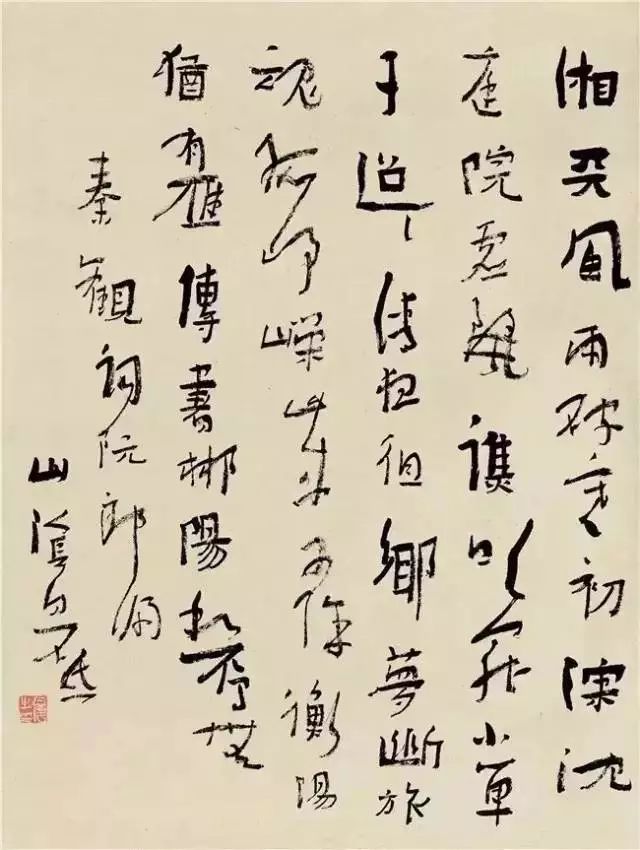 湘天風雨破寒初深沈
庭院虛麗譙吹罷小單
于迢〻清夜徂鄉夢斷旅
魂孤崢嶸歲又除衡陽
猶有雁傳書郴陽和雁無
秦觀詞阮郎歸
山陰